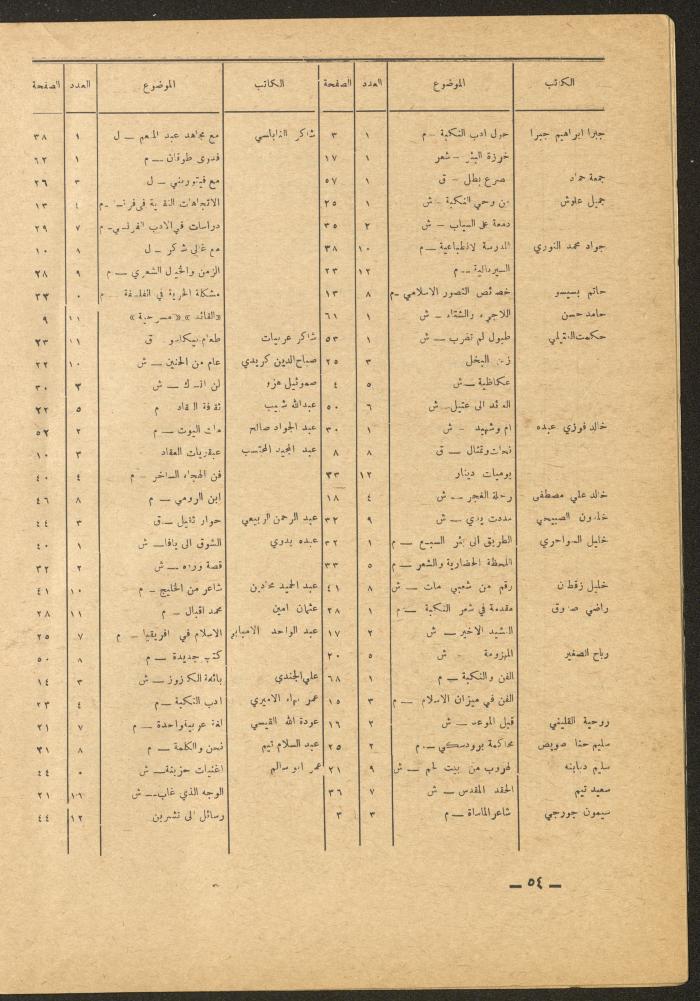 الكاتب الموضوع العدد الصفحة الكاتب الموضوع العدد الصفحة
جبرا ابراهيم جبرا حول ادب النكبة - م ١ ٣ شاكر النابلسي مع مجاهد عبد المنعم - ل ٩ ٣٨
خرزة البئر - شعر ١ ١٧ فدوى طوقان - م ١ ٦٢
جمعة حماد مصرع بطل - ق ١ ٥٧ مع فيتوريني - ل ٣ ٢٦
جميل علوش من وحي النكبة - ش ١ ٢٥ الاتجاهات ٤ ١٣
دمعة على السياب - ش ٢ ٣٥ دراسات في الادب الفرنسي - م ٧ ٢٩
جواد محمد النوري المدرسة الانطباعية - م ١٠ ٣٨ مع غالي شكري - ل ٨ ١٠
السيريالية - م ١٢ ٢٣ الزمن والخيال الشعري - م ٩ ٢٨
حاتم بسيسو خصائص التصور الاسلامي - م ٨ ١٣ مشكلة الحرية في الفلسفة - م ٣٣
حامد حسن اللاجيء والشتاء - ش ١ ٦١ «القائد» «مسرحية» ١١ ٩
حكمت العتيلي طبول لم تضرب - ش ١ ٥٣ شاكر عربيات طعام ق ١١ ٢٣
زمن البخل ٣ ٢٥ صباح الدين كريدي عام من الحنين - ش ١٠ ٢٢
عكاظية - ش ٥ ٤ صموئيل لن انساك - ش ٢ ٣٠
العائد الى عتيل - ش ٦ ٥٠ عبدالله شبيب م ٥ ٢٢
خالد فوزي عبده ام وشهيد - ش ١ ٣٠ عبد الجواد صالح مات اليوت - م ٢ ٥٢
نحات وتمثال - ق ٨ ٨ عبد المجيد المحتسب عبقريات العقاد ٣ ١٠
يوميات دينار ١٢ ٣٣ فن الهجاء الساخر - م ٤ ٤٠
خالد علي مصطفى رحلة الفجر - ش ٤ ١٨ ابن الرومي - م ٨ ٤٦
خلدون الصبيحي مددت يدي - ش ٩ ٣٢ عبد الرحمن الربيعي حوار ثقيل - ق ٣ ٤٤
خليل السواحري الطريق الى بئر السبع - م ١ ٣٢ عبده بدوي الشوق الى يافا - ش ١ ٤٠
اللحظة الحضارية والشعر - م ٥ ٣٣ قصة وردة - ش ٢ ٣٢
خليل زقطان رقم من شعبي مات - ش ٨ ٤١ عبد الحميد شاعر من الخليج - م ١٠ ٤١
راضي صدوق مقدمة في شعر النكبة - م ١ ٢٨ عثمان امين محمد اقبال - م ١١ ٢٨
النشيد الاخير - ش ٢ ١٧ عبد الواحد الامبابي الاسلام في افريقيا - م ٧ ٢٥
رباح الصغير المهزومة - ش ٥ ٢٠ كتب جديدة - م ٨ ٥٠
الفن والنكبة - م ١ ٦٨ علي الجندي بائعة الكازوز - ش ٣ ١٤
الفن في ميزان الاسلام - م ٣ ١٥ عمر بهاء الاميري ادب النكبة - م ٤ ٢٣
روحية القليني قبل الموعد - ش ٢ ١٦ عودة الله القيسي لغة عربية واحدة - م ٧ ٢١
سليم حنا صويص محاكمة برودسكي - م ٢ ٢٥ عبد السلام تيم نحن والكلمة - م ٨ ٣١
سليم دبابنه الهروب من بيت لحم - ش ٩ ٢١ عمر ابو سالم اغنيات حزينة - ش ٤٤
سعيد تيم الحقد المقدس - ش ٧ ٣٦ الوجه الذي غاب - ش ١٠ ٢١
سيمون جورجي شاعر الماساة - م ٣ ٣ رسائل الى تشرين ١٢ ٤٤
— ٥٤ —